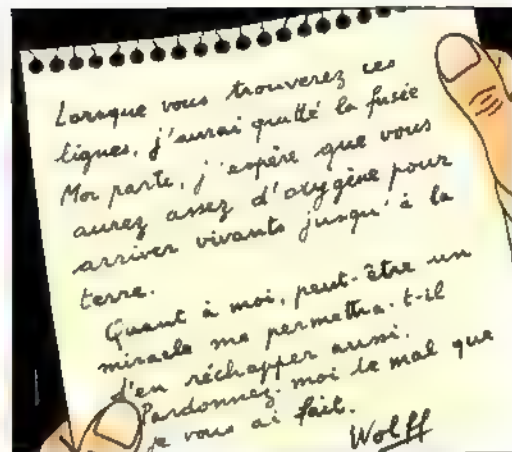 Lorsque vous trouverez ces
lignes, j'aurai quitté la fusée
Moi parti, j'espère que vous
aurez assez d'oxygène pour
arriver vivants jusqu'à la
terre.
Quant à moi, peut-être un
miracle me permettra-t-il
d'en réchapper aussi.
Pardonnez-moi le mal que
je vous ai fait.
Wolff